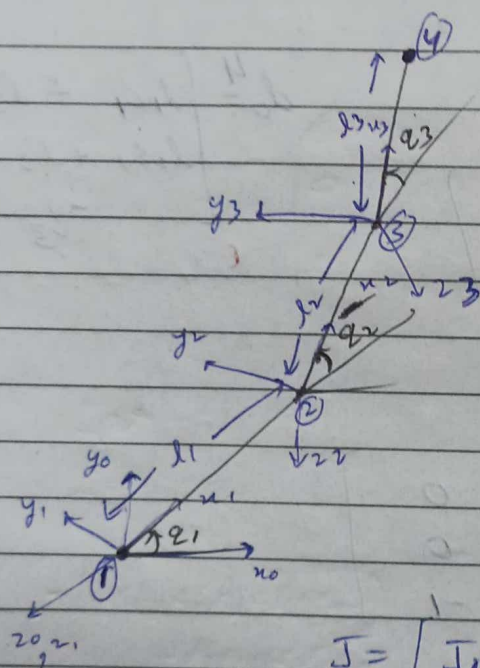 4
l3
x3
q3
y3
3
z3
l2
x2
q2
y2
2
z2
l1
y0
x1
y1
q1
1
x0
z0, z1
J =